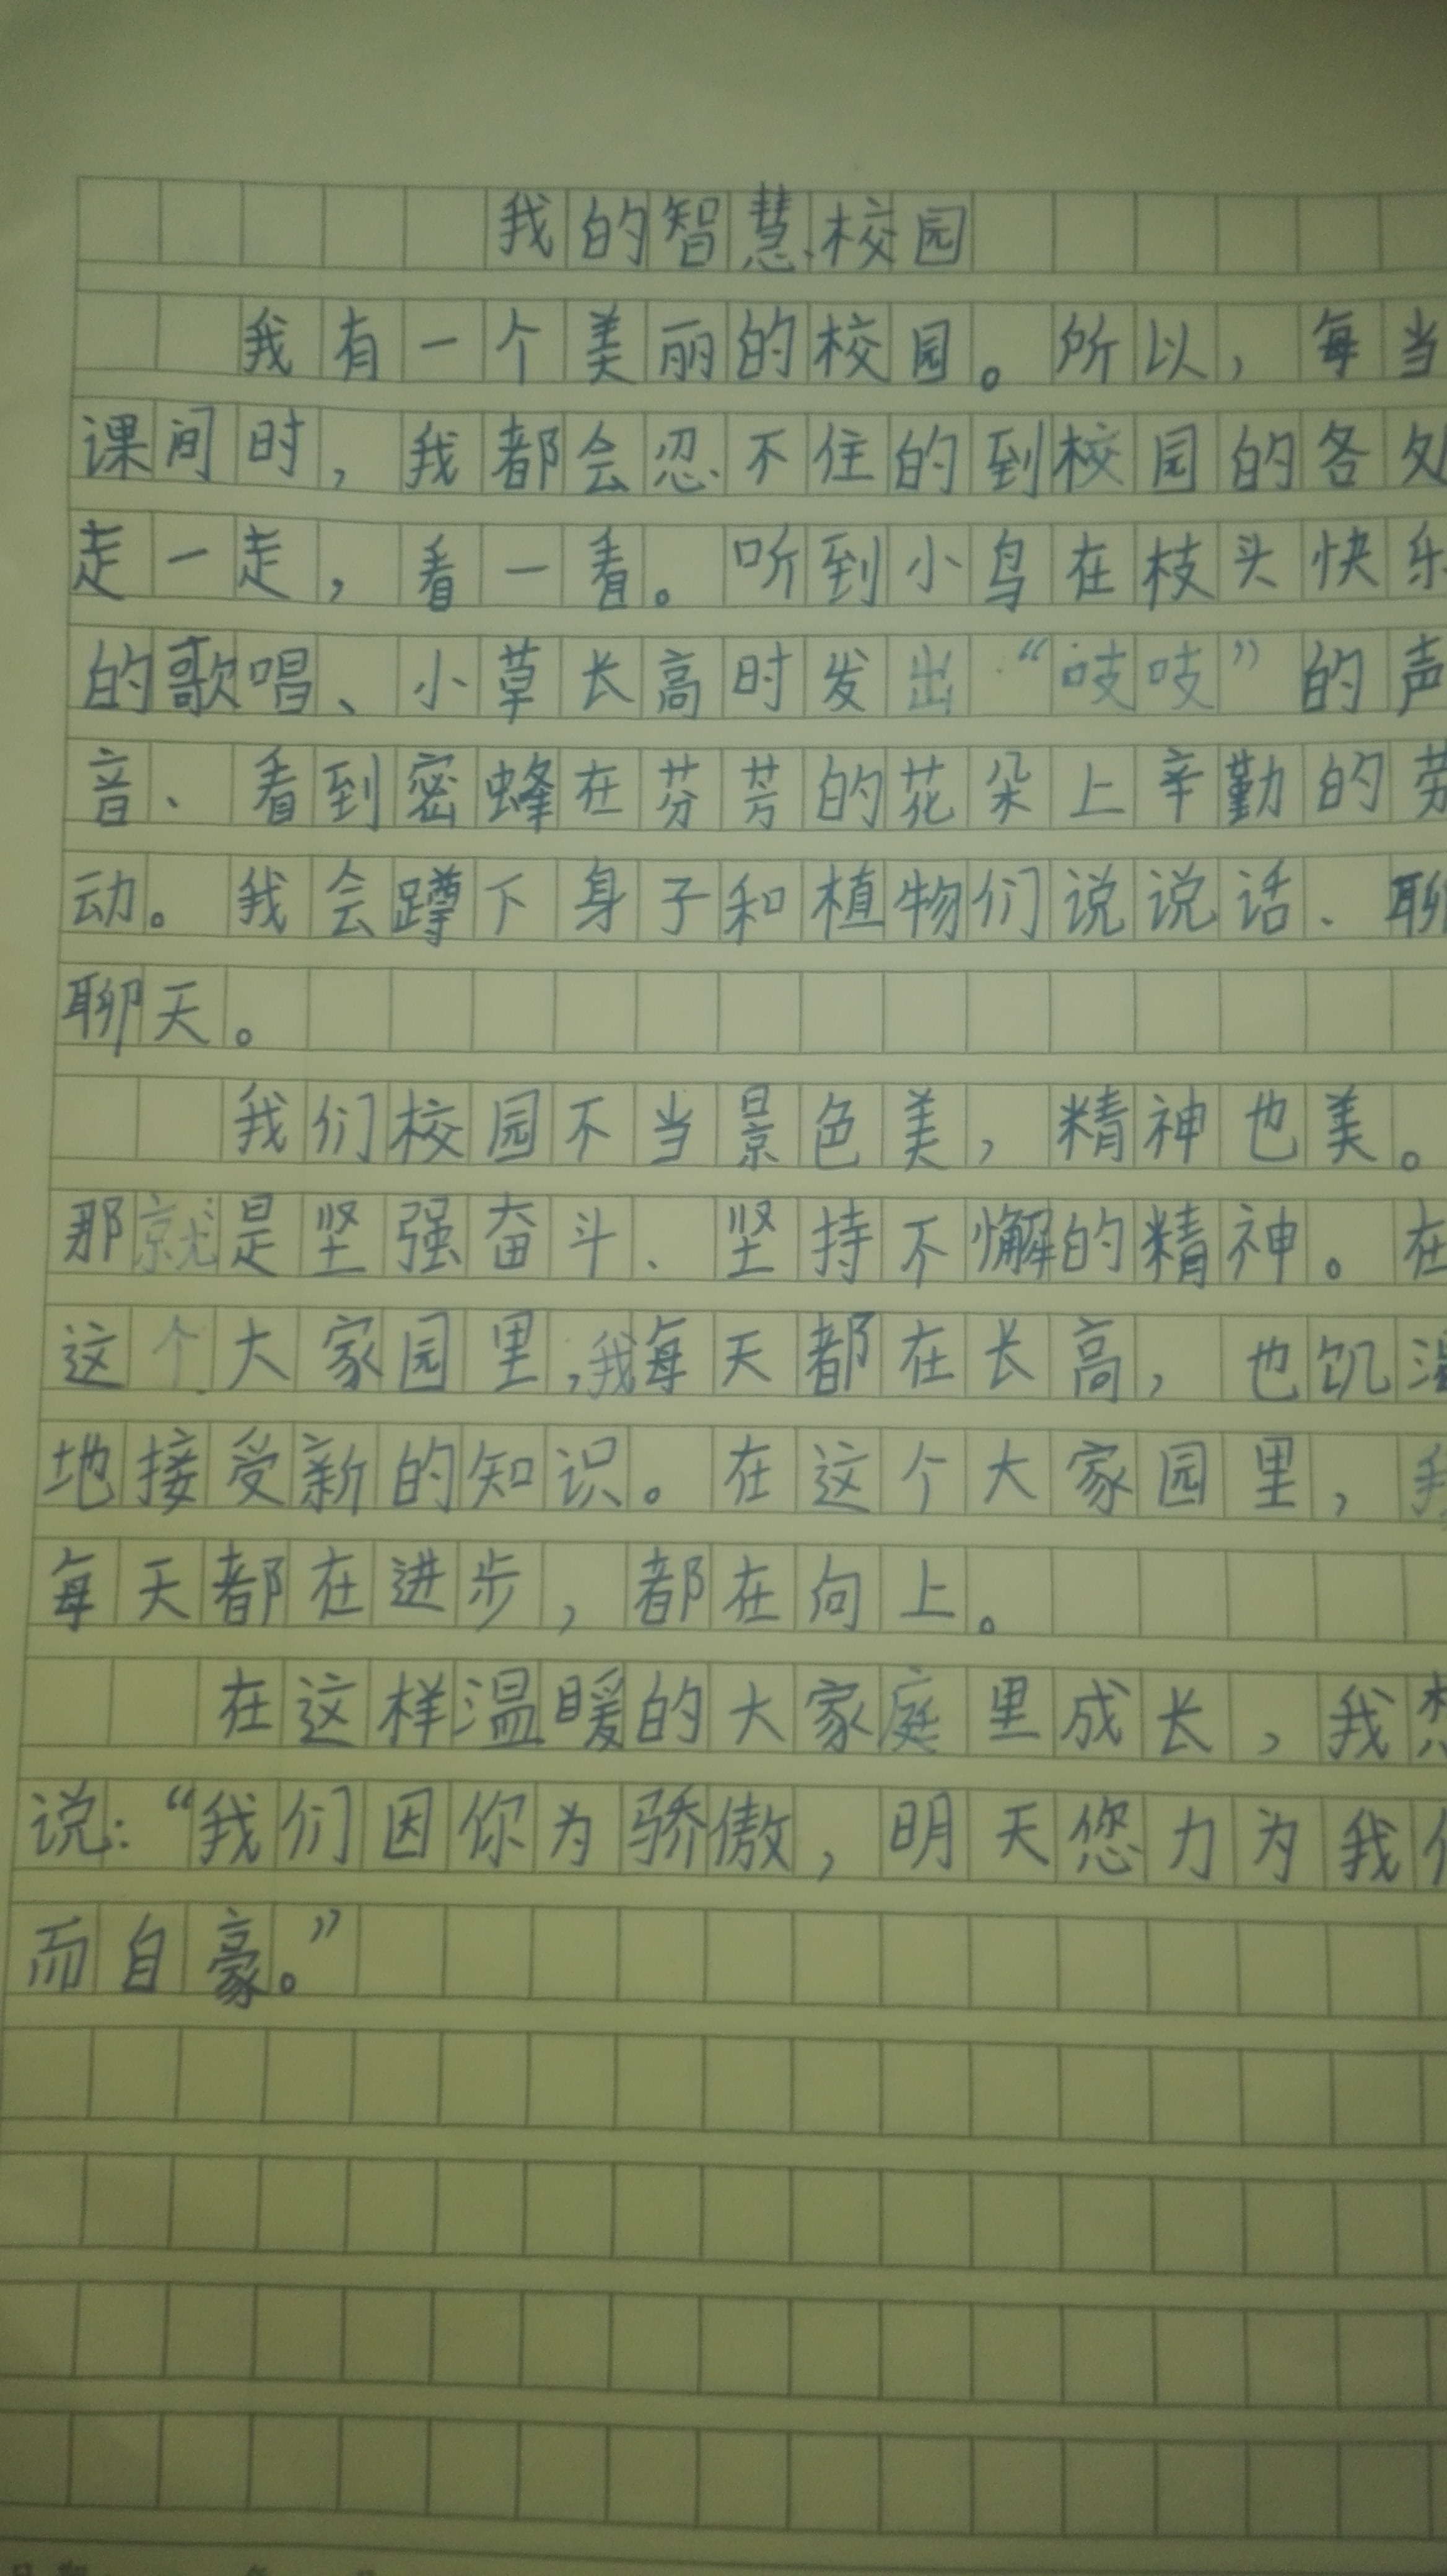 我的智慧校园
我有一个美丽的校园。所以，每当
课间时，我都会忍不住的到校园的各处
走一走，看一看。听到小鸟在枝头快乐
的歌唱、小草长高时发出“吱吱”的声
音、看到密蜂在芬芳的花朵上辛勤的劳
动。我会蹲下身子和植物们说说话、聊
聊天。
我们校园不当景色美，精神也美。
那就是坚强奋斗、坚持不懈的精神。在
这个大家园里，我每天都在长高，也饥渴
地接受新的知识。在这个大家园里，我
每天都在进步，都在向上。
在这样温暖的大家庭里成长，我想
说：“我们因你为骄傲，明天您力为我们
而自豪。”